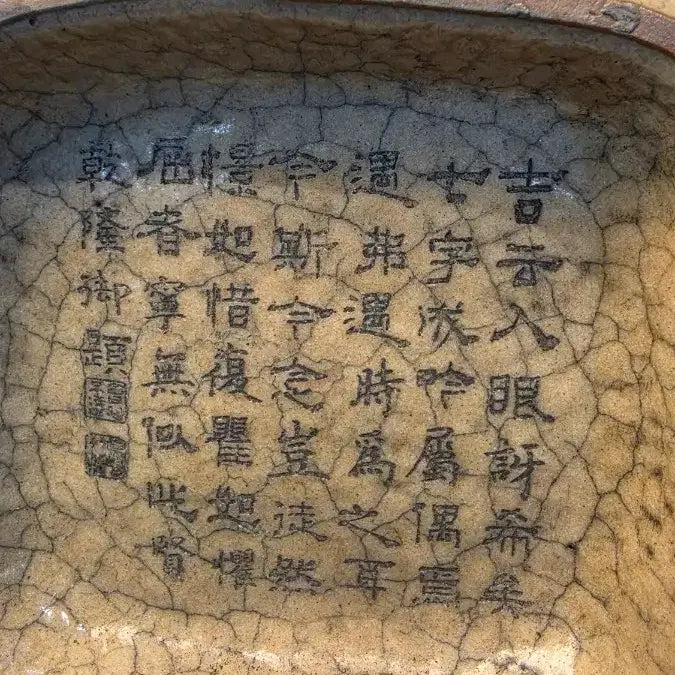 吉云入眼訝希矣
字成吟屬偶
遇弗遇時為之耳
今斯今念豈徒然
憬如惜復瞿如懼
屈者寧無似此賢
乾隆御題